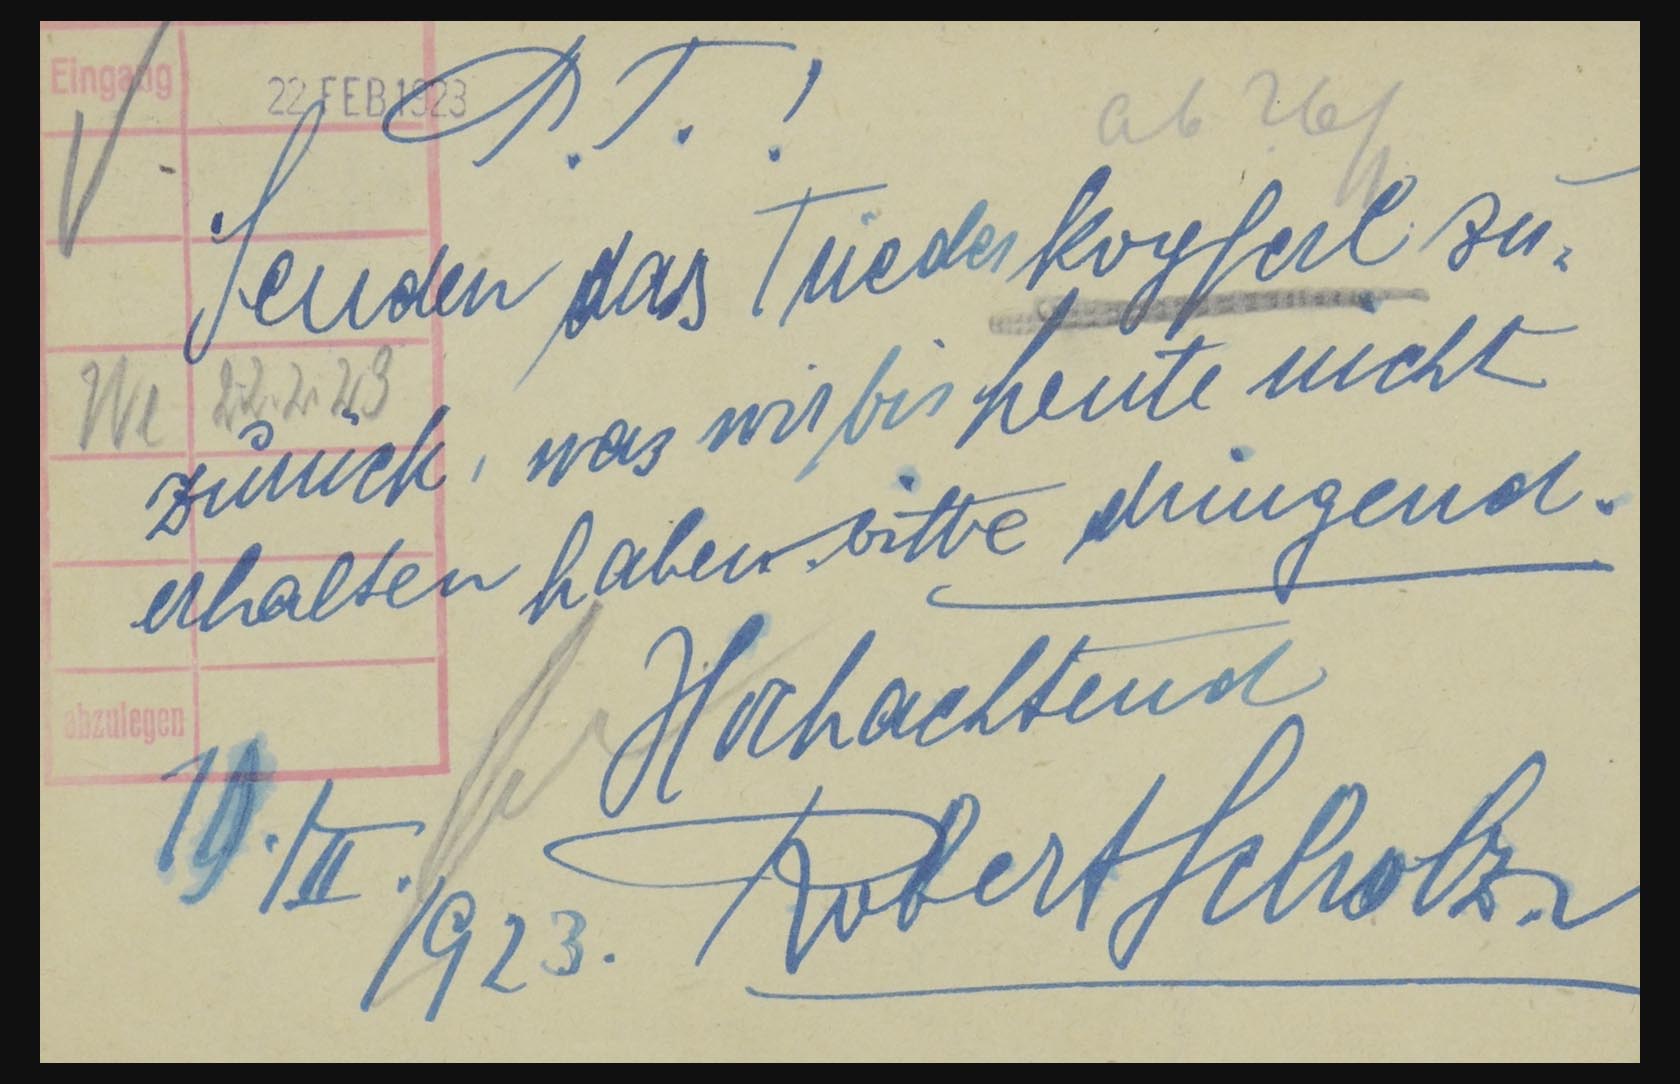 Eingang 22 FEB 1923
P. T. !
ab
Senden das Triederkopferl zu-
We 22.2.23
zurück, was wir bis heute nicht
erhalten haben bitte dringend.
Hochachtend
abzulegen
19./II.
1923.
Robert Scholz